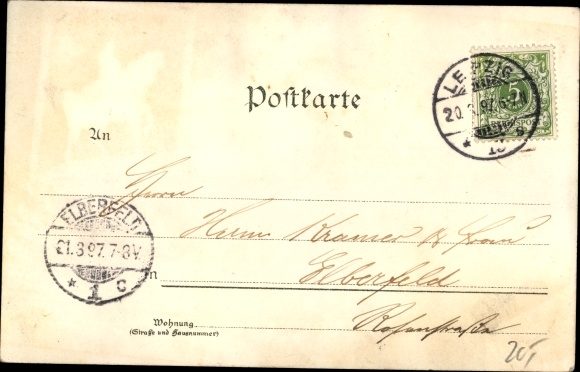 Postkarte
LEIPZIG
20.3.97.6-7N
* 1c
5
An
Herrn
ELBERFELD
21.3.97.7-8V.
* 1 c
Kramer & Frau
in Elberfeld
Wohnung
(Straße und Hausnummer)
Rosenstraße
20,